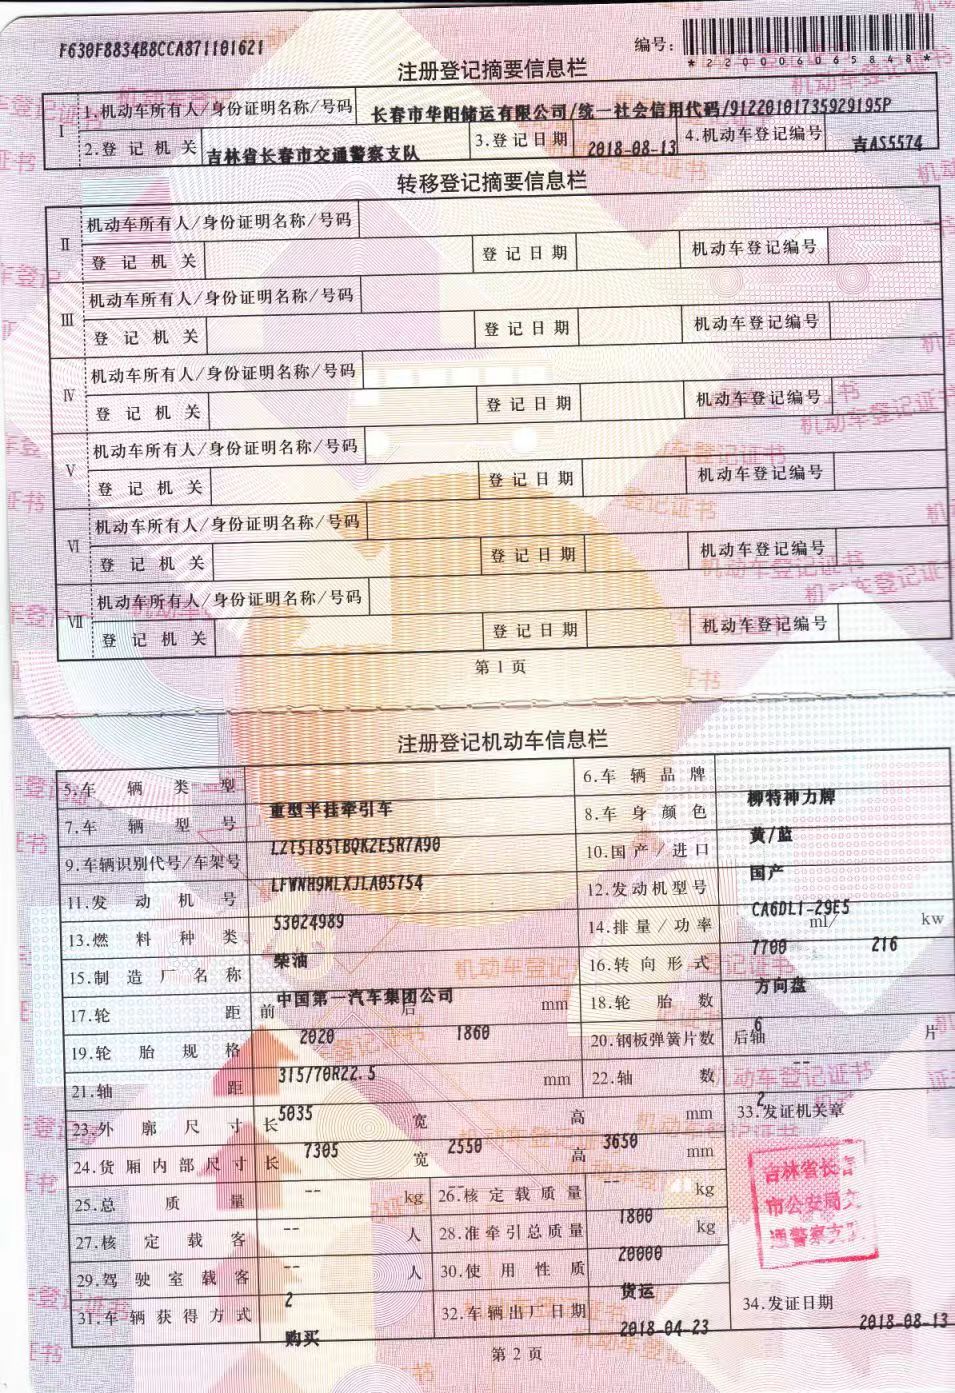 F630F8834B8CCA871101621
编号:
*220006065848*
注册登记摘要信息栏
I 1.机动车所有人/身份证明名称/号码 长春市华阳储运有限公司/统一社会信用代码/91220101735929195P
2.登记机关 吉林省长春市交通警察支队 3.登记日期 2018-08-13 4.机动车登记编号 吉AS5574
转移登记摘要信息栏
II 机动车所有人/身份证明名称/号码
登记机关 登记日期 机动车登记编号
III 机动车所有人/身份证明名称/号码
登记机关 登记日期 机动车登记编号
IV 机动车所有人/身份证明名称/号码
登记机关 登记日期 机动车登记编号
V 机动车所有人/身份证明名称/号码
登记机关 登记日期 机动车登记编号
VI 机动车所有人/身份证明名称/号码
登记机关 登记日期 机动车登记编号
VII 机动车所有人/身份证明名称/号码
登记机关 登记日期 机动车登记编号
第1页
注册登记机动车信息栏
5.车辆类型 重型半挂牵引车 6.车辆品牌 柳特神力牌
7.车辆型号 LZT5185TBQK2E5R7A90 8.车身颜色 黄/蓝
9.车辆识别代号/车架号 LFWNH9MLXJLA05754 10.国产/进口 国产
11.发动机号 53024989 12.发动机型号 CA6DL1-29E5
13.燃料种类 柴油 14.排量/功率 7700 ml/ 216 kw
15.制造厂名称 中国第一汽车集团公司 16.转向形式 方向盘
17.轮距 前 2020 后 1860 mm 18.轮胎数 6
19.轮胎规格 315/70R22.5 20.钢板弹簧片数 后轴 -- 片
21.轴距 5035 mm 22.轴数 2
23.外廓尺寸 长 7305 宽 2550 高 3650 mm 33.发证机关章
24.货厢内部尺寸 长 -- 宽 -- 高 -- mm
吉林省长春
市公安局交
通警察支队
25.总质量 -- kg 26.核定载质量 1800 kg
27.核定载客 -- 人 28.准牵引总质量 20000 kg
29.驾驶室载客 2 人 30.使用性质 货运
31.车辆获得方式 购买 32.车辆出厂日期 2018-04-23 34.发证日期 2018-08-13
第2页